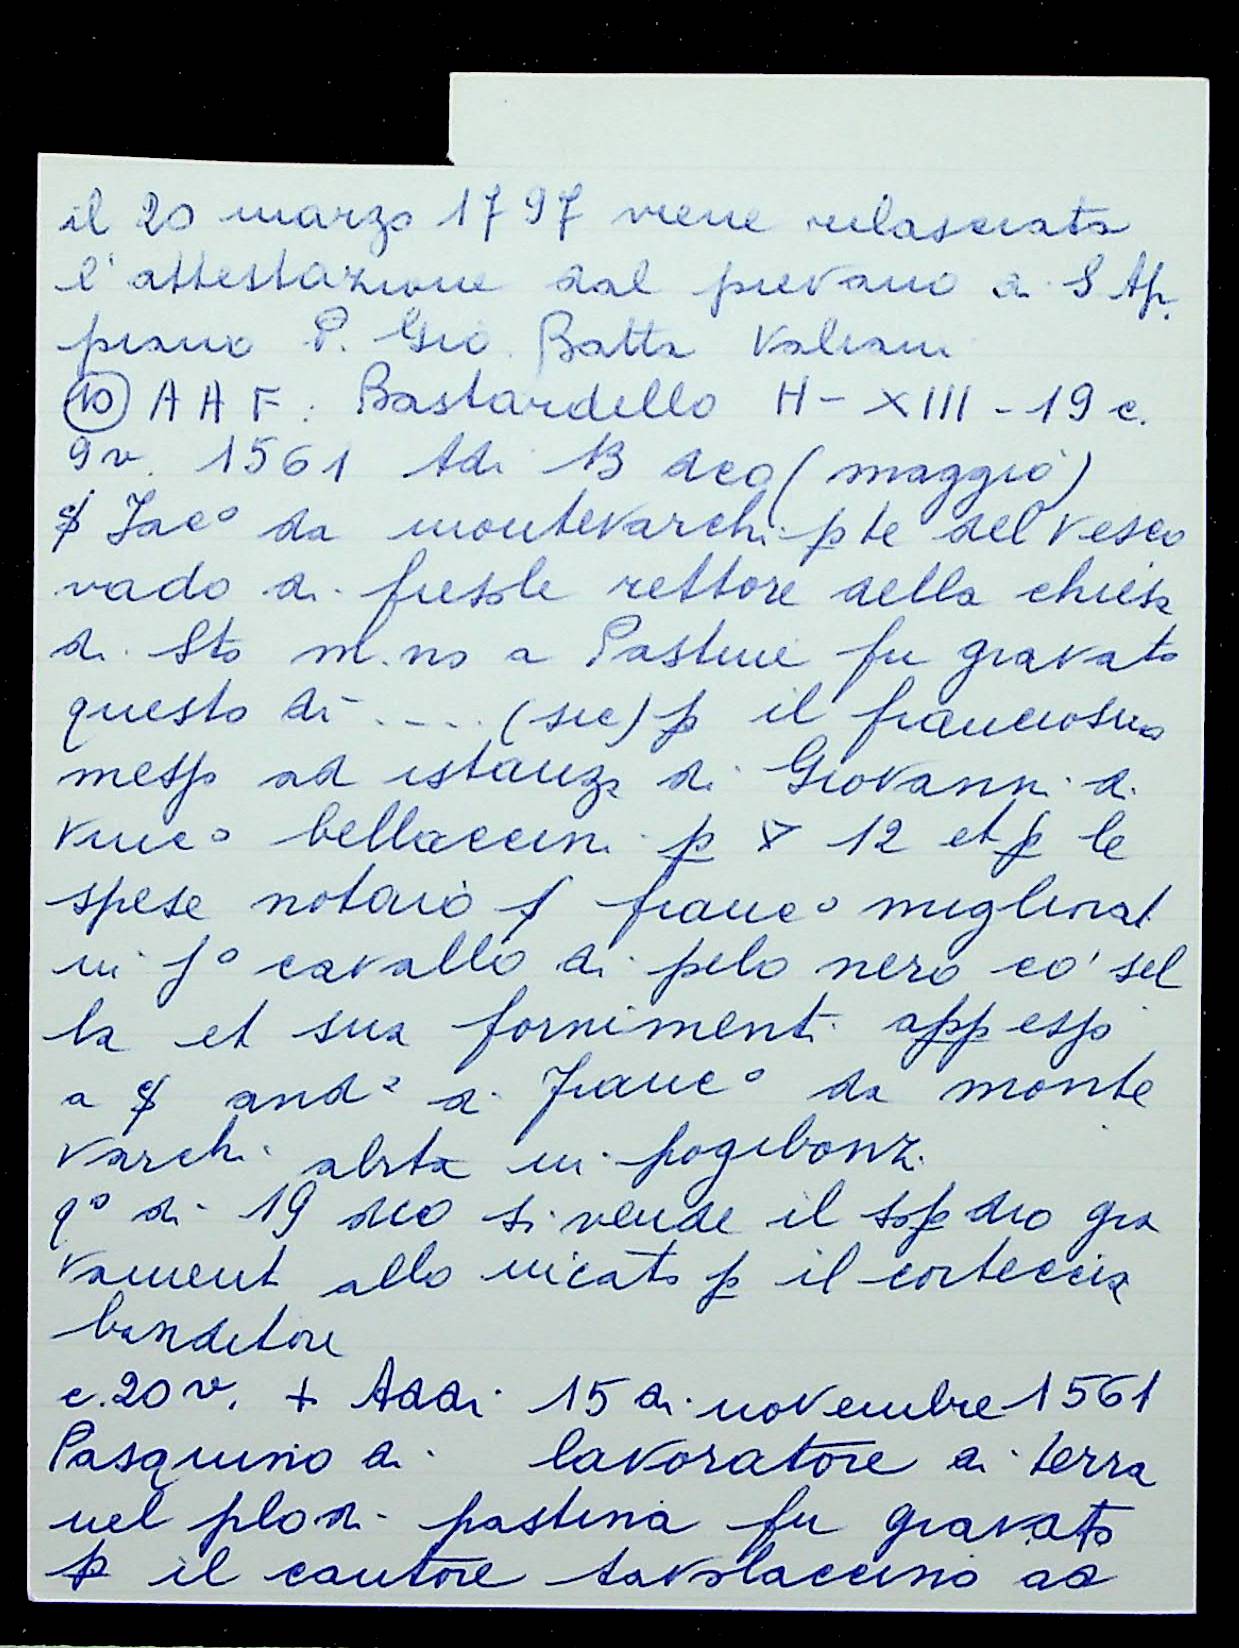 il 20 marzo 1797 viene rilasciata
l'attestazione dal pievano di S Ap.
piano P. Gio. Batta Valiani
10 A A F. Bastardello H - XIII - 19 c.
9v. 1561 Adi 13 dco (maggio)
Jac° da montevarchi pte del vesco
vado di fiesole rettore della chiesa
di Sto m.no a Pastine fu gravato
questo di - .... (sic) p il franciosino
messo ad istanza di Giovanni di
vinc° bellaccini p 12 et p le
spese notaio franc° migliorat
in j° cavallo di pelo nero co' sel
la et sua fornimenti appesso
a and° di franc° da monte
varchi abita in pogibonzi
q° di 19 dco si vende il sop dto gra
vament allo incato p il corteccia
banditore
c.20 v. + Addi 15 di novembre 1561
Pasquino di lavoratore di terra
nel plo di pastina fu gravato
p il cantore tavolaccino ad